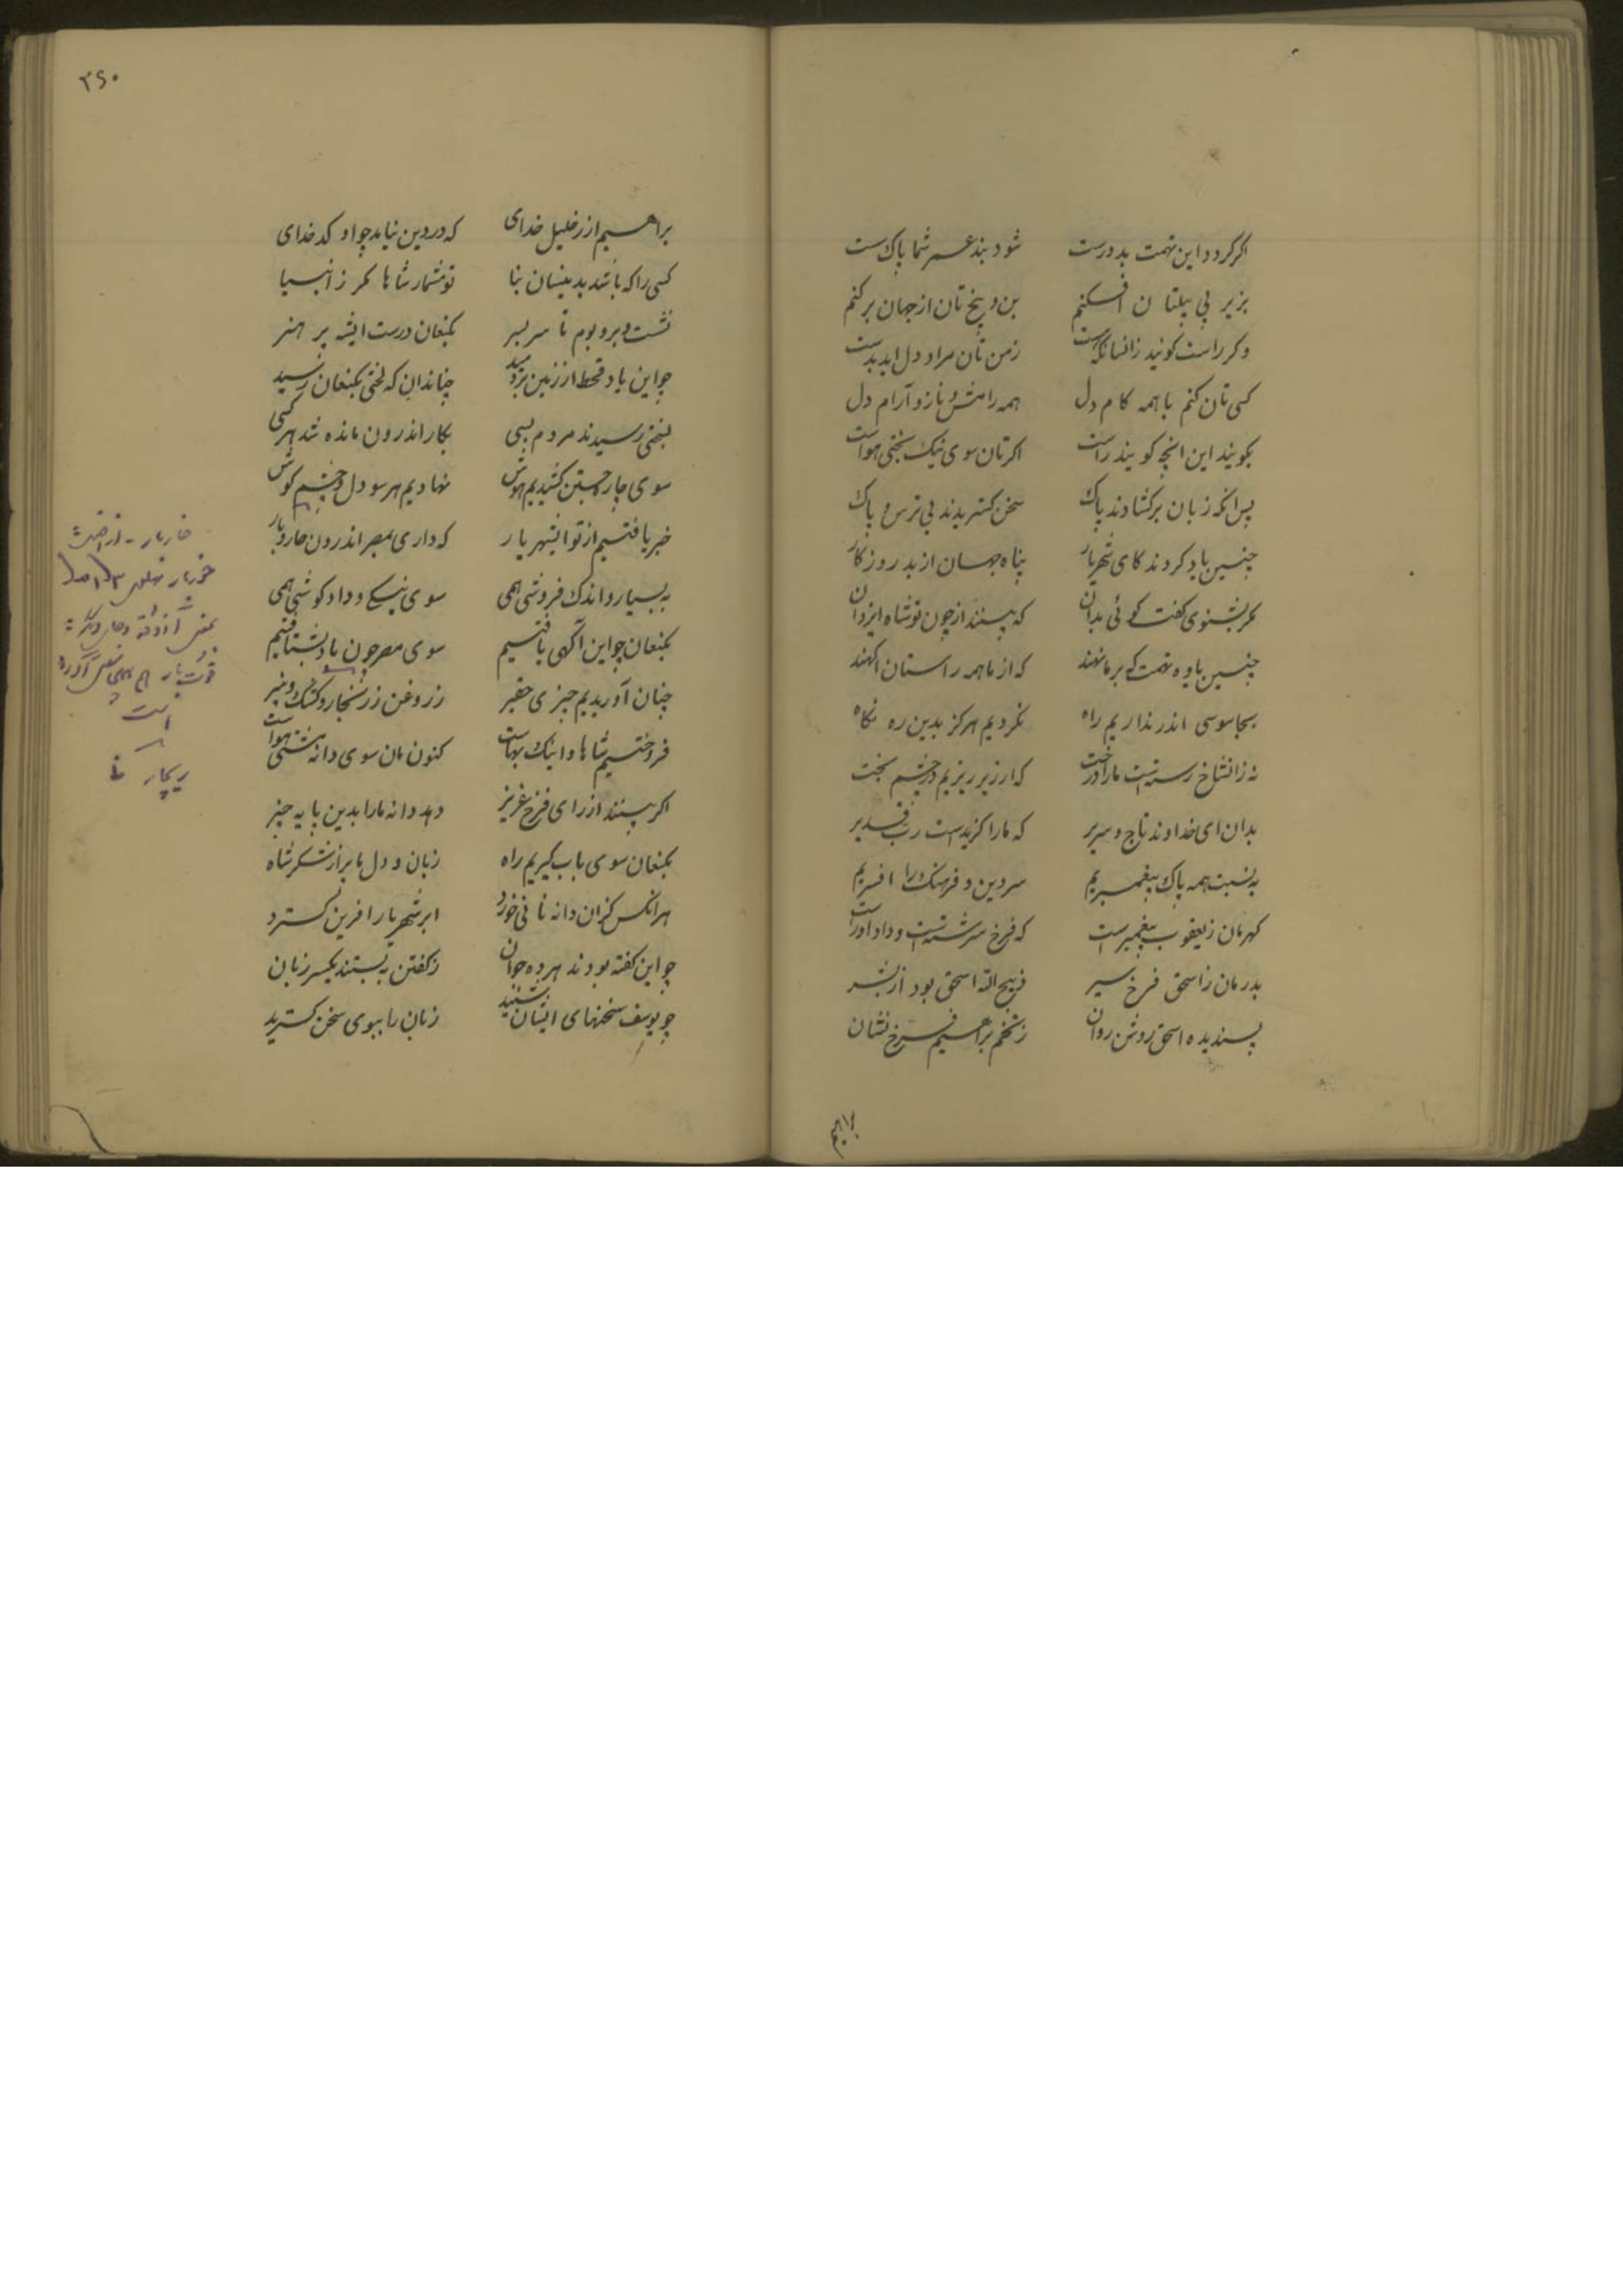 اکر کردد این تهمت بد درست شود بند عمر شما پاک سست
بزیر پی پیلتان افکنم بن و بیخ تان از جهان بر کنم
وکر راست کوئید زانسانکه هست زمن تان مراد دل اید بدست
کسی تان کنم با همه کام دل همه رامش و ناز و آرام دل
بکویید این انچه کویند راست اکر تان سوی نیک بختی هواست
پس انکه زبان بر کشادند پاک سخن کستریدند بی ترس و باک
چنین یاد کردند کای شهریار پناه جهان از بد روزکار
که پسندد از چون تو شاه ایزد آن
چنین یاوه تهمت که بر ما نهند که از ما همه راستان اکهند
بجاسوسی اندر نداریم راه نکردیم هرکز بدین ره نکاه
نه زانشاخ رستست ما را درخت
بدان ای خداوند تاج و سریر که ما را کزیدست رب قدیر
به نسبت همه پاک پیغمبریم سر دین و فرهنک را افسریم
کهرمان ز یعقوب پیغمبر است که فرخ سرشتست و داد اورست
پدرمان ز اسحق فرخ سیر ذبیح الله اسحق بود از بشر
پسندیده اسحق روشن روان ز تخم براهیم فرخ نشان
براهیم
۳۶۰
براهیم ازر خلیل خدای که در دین نیاید چو او کدخدای
کسی را که باشد بدینسان نیا تو مشمار شاها کمر ز انبیا
نشست و بر و بوم ما سر بسر بکنعان درست ایشه پر هنر
چو این باد قحط از زمین بردمید چنان دان که لختی بکنعان رسید
بسختی رسیدند مردم بسی بکار اندرون مانده شد هر کسی
سوی چاره جستن کشیدیم هوش نهادیم هر سو دل و چشم و کوش
خبر یافتیم از تو ایشهریار که داری بمصر اندرون خاروبار
به بسیار و اندک فروشی همی سوی نیکی و داد کوشی همی
بکنعان چو این آکهی یافتیم سوی مصر چون باد بشتافتیم
چنان آوریدیم چیزی حقیر ز روغن ز رنجار و کشک و پنیر
فروختیم شاها و اینک بهاست کنون مان سوی دانه هستی هواست
اکر پسندد از رای فرخ عزیز دهد دانه ما را بدین پایه چیز
بکنعان سوی باب کیریم راه زبان و دل ما پر از شکر شاه
هر انکس کزان دانه نانی خورد ابر شهریار افرین کسترد
چو این کفته بودند هر ده جوان ز کفتن به بستند یکسر زبان
چو یوسف سخنهای ایشان شنید زبان را ببوی سخن کسترید
خاربار
است
ریچار